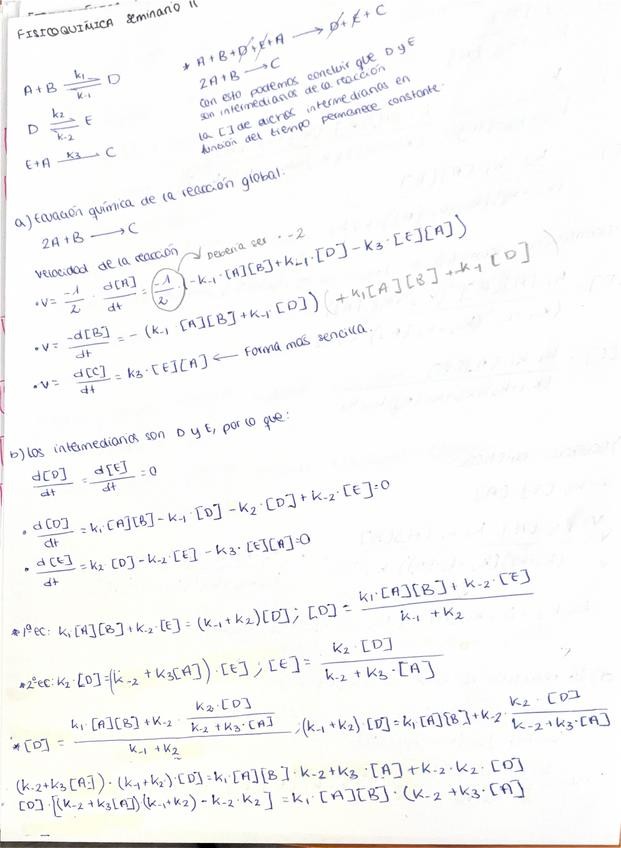 FISICOQUÍMICA Seminario 11
A+B ⇌ D k₁ k₋₁
D ⇌ E k₂ k₋₂
E+A → C k₃
* A+B+D+E+A → D+E+C
2A+B → C
Con esto podemos concluir que D y E
son intermediarios de la reacción
la [ ] de dichos intermediarios en
función del tiempo permanece constante.
a) Ecuación química de la reacción global.
2A+B → C
Velocidad de la reacción
Debería ser · -2
• V = -1/2 · d[A]/dt = -1/2 · (-k₋₁·[A][B]+k₋₁·[D]-k₃·[E][A])
• V = -d[B]/dt = -(k₋₁[A][B]+k₋₁·[D]) (+k₁[A][B]+k₋₁[D])
• V = d[C]/dt = k₃·[E][A] ← Forma más sencilla.
b) Los intermediarios son D y E, por lo que:
d[D]/dt = d[E]/dt = 0
• d[D]/dt = k₁·[A][B]-k₋₁·[D]-k₂·[D]+k₋₂·[E]=0
• d[E]/dt = k₂·[D]-k₋₂·[E]-k₃·[E][A]=0
*1ª ec: k₁[A][B]+k₋₂·[E]=(k₋₁+k₂)[D]; [D]= (k₁·[A][B]+k₋₂·[E])/(k₋₁+k₂)
*2ª ec: k₂·[D]=(k₋₂+k₃[A])·[E]; [E]= (k₂·[D])/(k₋₂+k₃·[A])
*[D]= (k₁·[A][B]+k₋₂·(k₂·[D])/(k₋₂+k₃·[A]))/(k₋₁+k₂); (k₋₁+k₂)·[D]=k₁[A][B]+k₋₂·(k₂·[D])/(k₋₂+k₃[A])
(k₋₂+k₃[A])·(k₋₁+k₂)·[D]=k₁·[A][B]·k₋₂+k₃·[A]+k₋₂·k₂·[D]
[D]·[(k₋₂+k₃[A])(k₋₁+k₂)-k₋₂·k₂]=k₁·[A][B]·(k₋₂+k₃·[A])